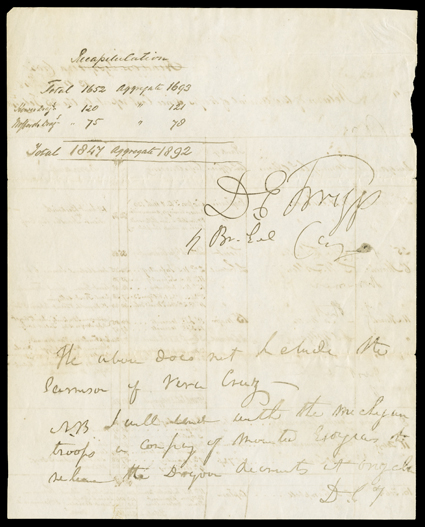 Recapitulation
Total 1652 Aggregate 1693
" 120 " 121
" 75 " 78
Total 1847 Aggregate 1892
D E Twiggs
Br. Gel
The above does not include the
Garrison of Vera Cruz
NB I will send with the Michigan
troops a company of Mounted
the Dragoon
D. E. T